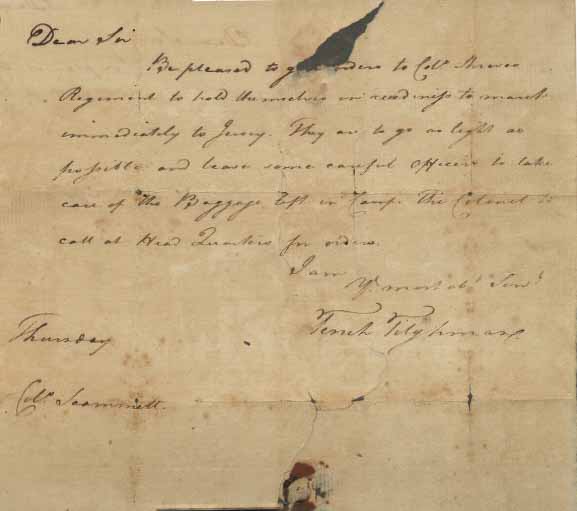 Dear Sir
Be pleased to give orders to Col.º Shreves
Regiment to hold themselves in readiness to march
immediately to Jersey. They are to go as light as
possible and leave some careful officer to take
care of the Baggage left in Camp. The Colonel to
call at Head Quarters for orders.
I am
Y.r most ob.t Serv.t
Tench Tilghman
Thursday
Col.º Scammell.